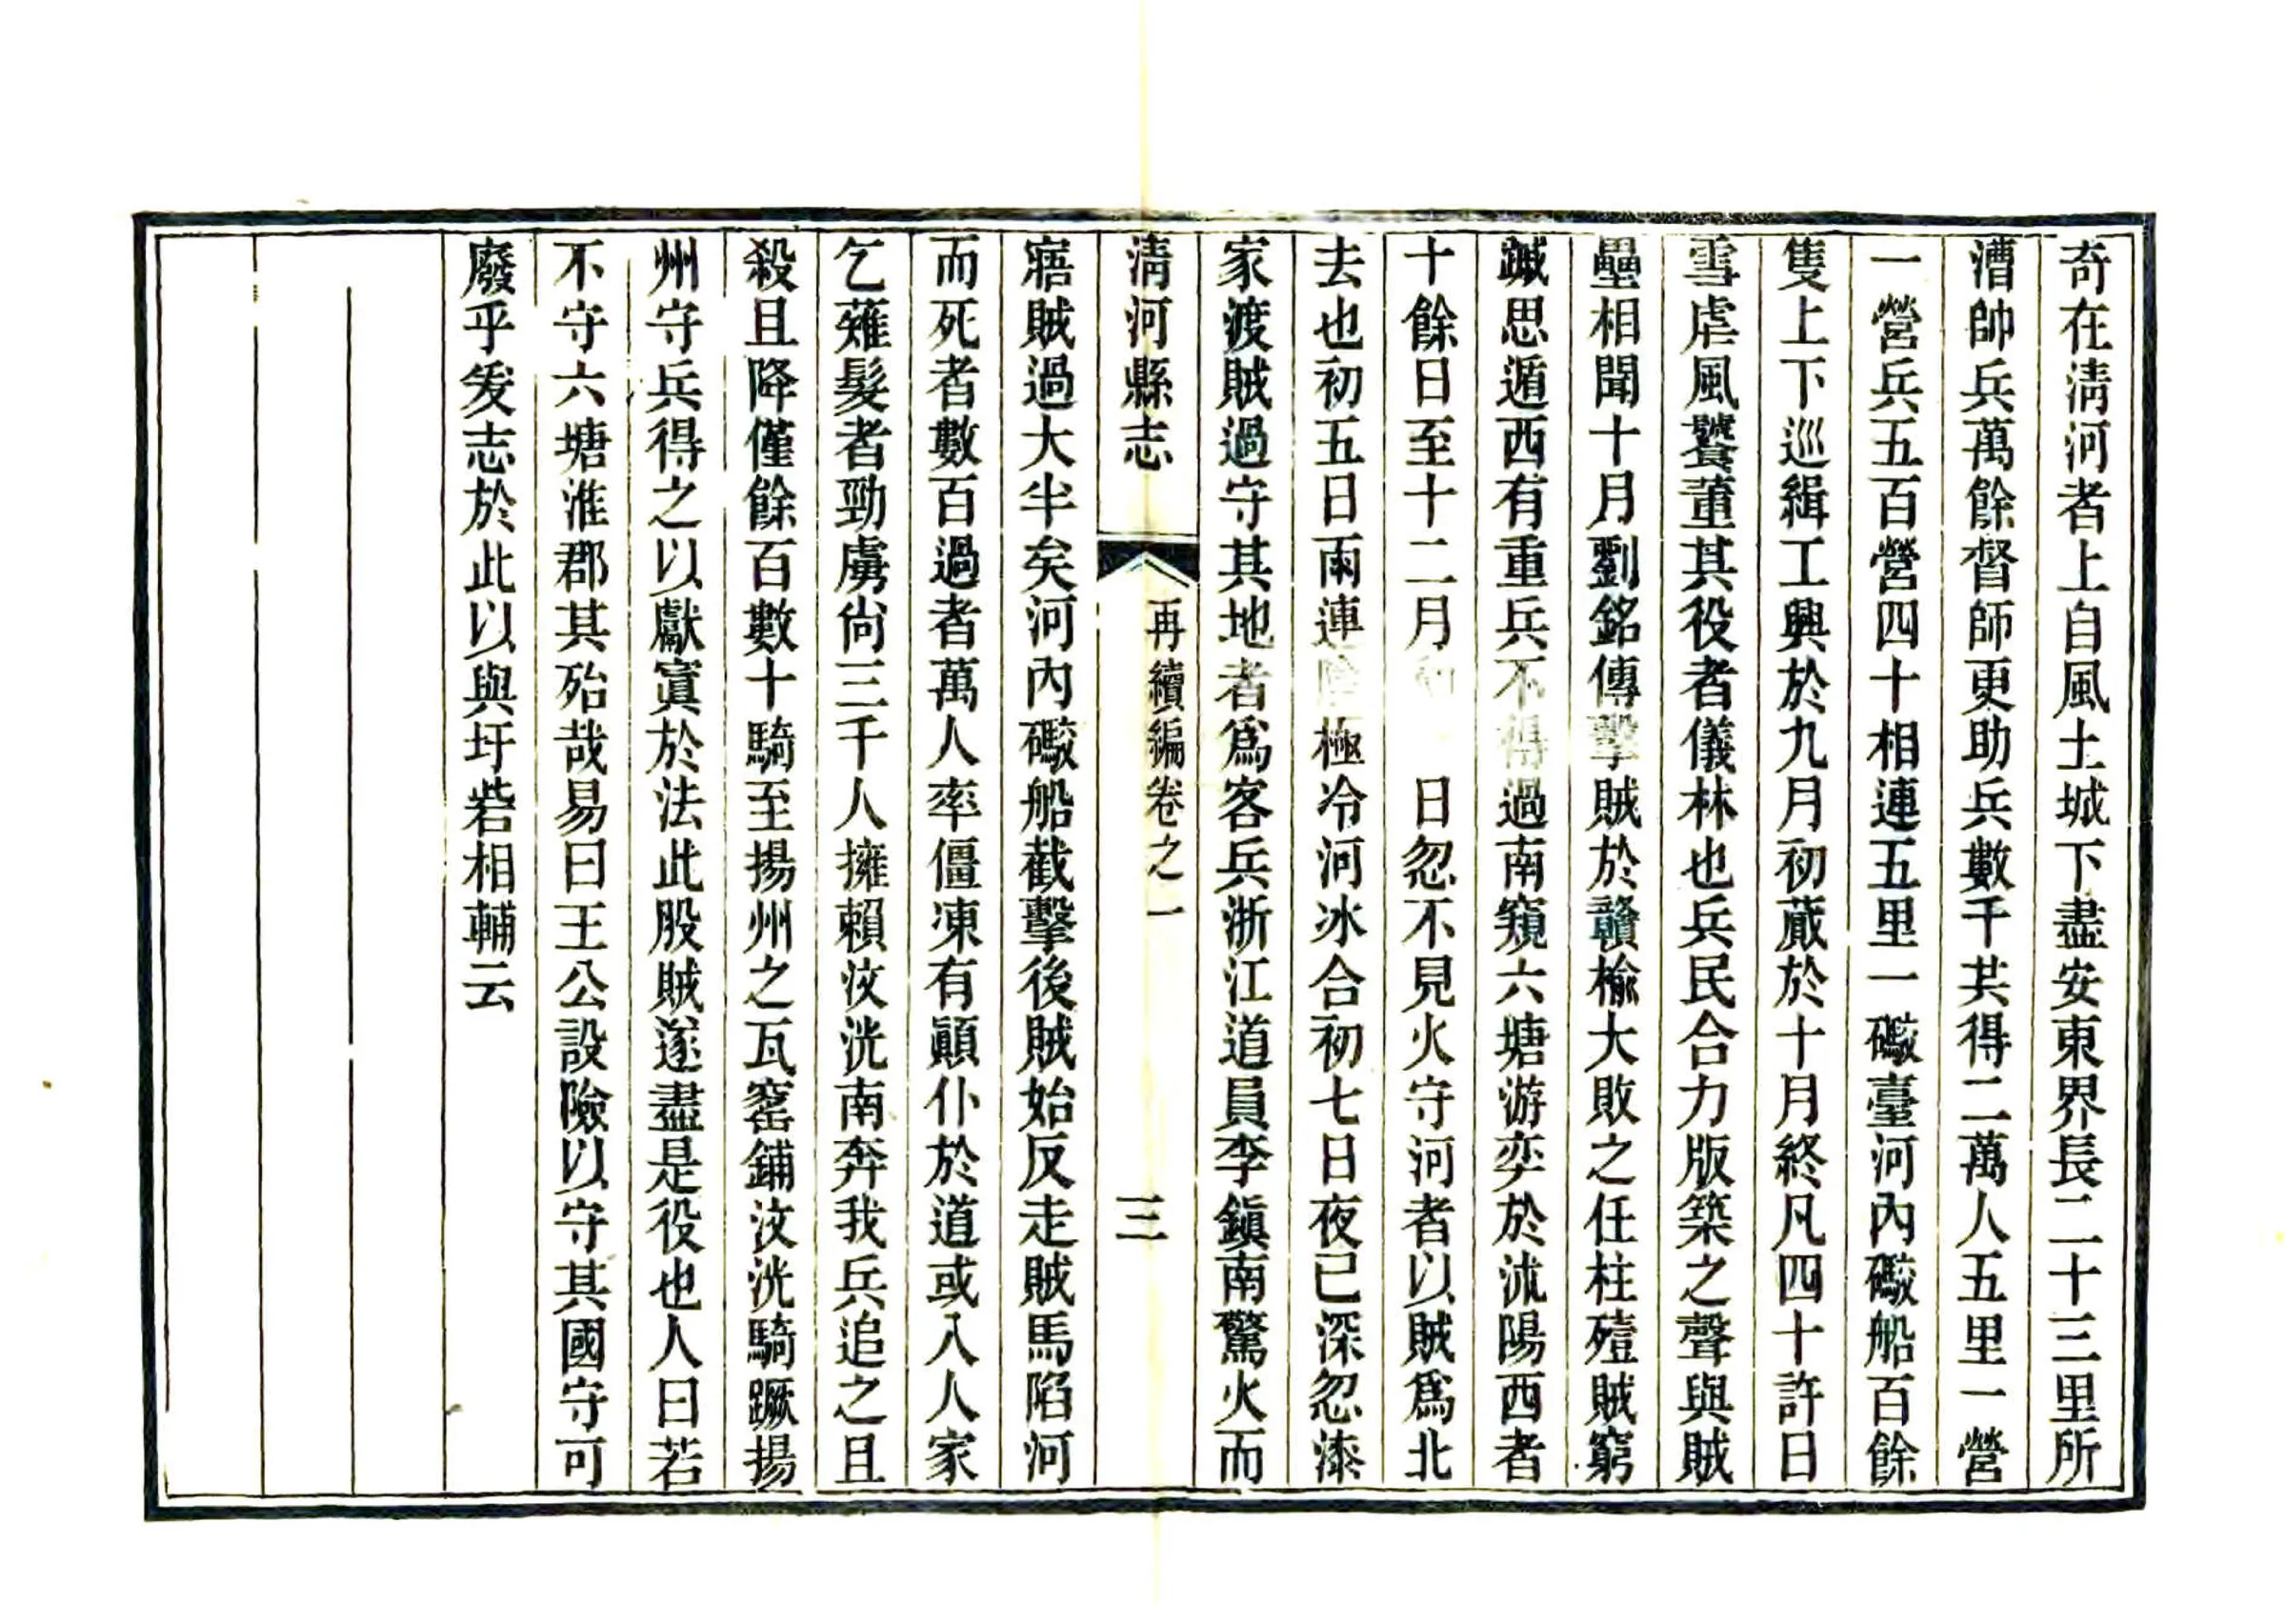 奇在淸河者上自風土城下盡安東界長二十三里所
漕帥兵萬餘督師更助兵數千共得二萬人五里一營
一營兵五百營四十相連五里一礮臺河內礮船百餘
隻上下巡緝工興於九月初蕆於十月終凡四十許日
雪虐風饕董其役者儀林也兵民合力版築之聲與賊
壘相聞十月劉銘傳擊賊於贛榆大敗之任柱殪賊窮
蹙思遁西有重兵不得過南窺六塘游奕於沭陽西者
十餘日至十二月初 日忽不見火守河者以賊爲北
去也初五日雨連陰極冷河冰合初七日夜已深忽漆
家渡賊過守其地者爲客兵浙江道員李鎭南驚火而
淸河縣志 再續編卷之一 三
寤賊過大半矣河內礮船截擊後賊始反走賊馬陷河
而死者數百過者萬人率僵凍有顚仆於道或入人家
乞薙髮者勁虜尙三千人擁賴汶洸南奔我兵追之且
殺且降僅餘百數十騎至揚州之瓦窰鋪汶洸騎蹶揚
州守兵得之以獻寘於法此股賊遂盡是役也人曰若
不守六塘淮郡其殆哉易曰王公設險以守其國守可
廢乎爰志於此以與圩砦相輔云